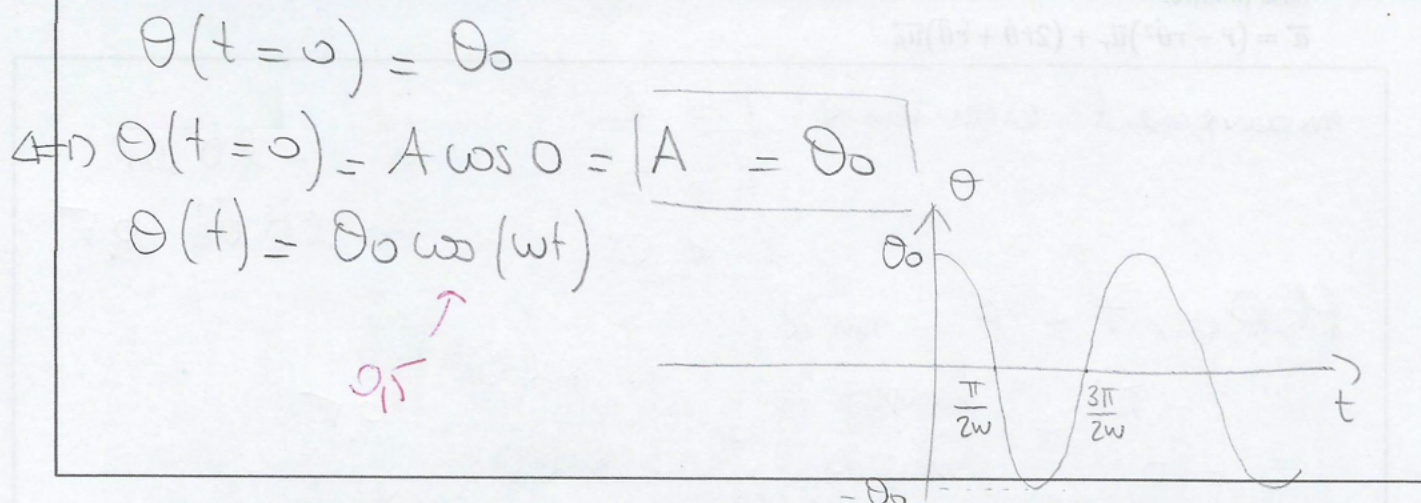 θ(t=0) = θ₀
⟺ θ(t=0) = A cos 0 = A = θ₀
θ(t) = θ₀ cos(ωt)
0,5
θ
θ₀
π/2ω
3π/2ω
t
-θ₀